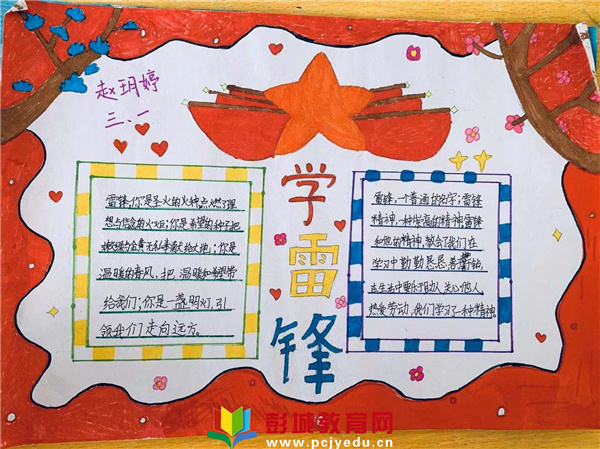 赵玥婷
三、一
学雷锋
雷锋,你是圣火的火种,点燃了理
想与信念的火炬;你是希望的种子,把
燃烧与金黄无私奉献给大地;你是
温暖的春风,把温暖和希望带
给我们;你是一盏明灯,引
领我们走向远方。
雷锋,一个普通的名字;雷锋
精神,一种崇高的精神。雷锋
和他的精神,教会了我们在
学习中勤勤恳恳,善于钻,
在生活中要乐于助人,关心他人,
热爱劳动,我们学习了一种精神。
彭城教育网
www.pcjyedu.cn